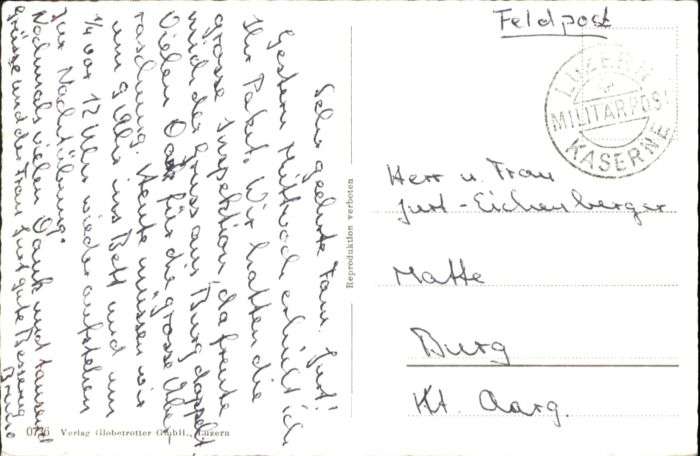 Sehr geehrte Fam. Jurt!
Gestern Mittwoch erhielt ich
Ihr Paket. Wir hatten die
grosse Inspektion, da freute
mich der Gruss aus Burg doppelt.
Vielen Dank für die grosse Über-
raschung. Heute müssen wir
um 9 Uhr ins Bett und um
1/4 vor 12 Uhr wieder aufstehen
zur Nachtübung.
Nochmals vielen Dank und tausend
Grüsse und der Frau Jurt gute Besserung
Bruno
Feldpost
LUZERN
MILITÄRPOST
KASERNE
Herr u. Frau
Jurt-Eichenberger
Matte
Burg
Kt. Aarg.
Reproduktion verboten
Verlag Globetrotter GmbH., Luzern